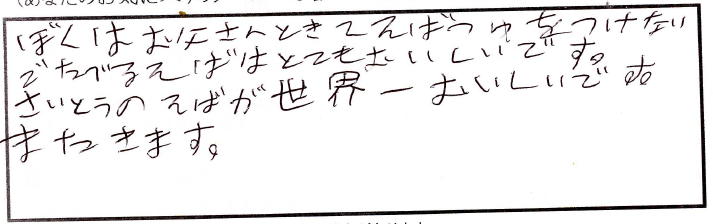 ぼくはお父さんときてそばつゆをつけない
でたべるそばはとてもおいしいです。
さいとうのそばが世界一おいしいです。
またきます。